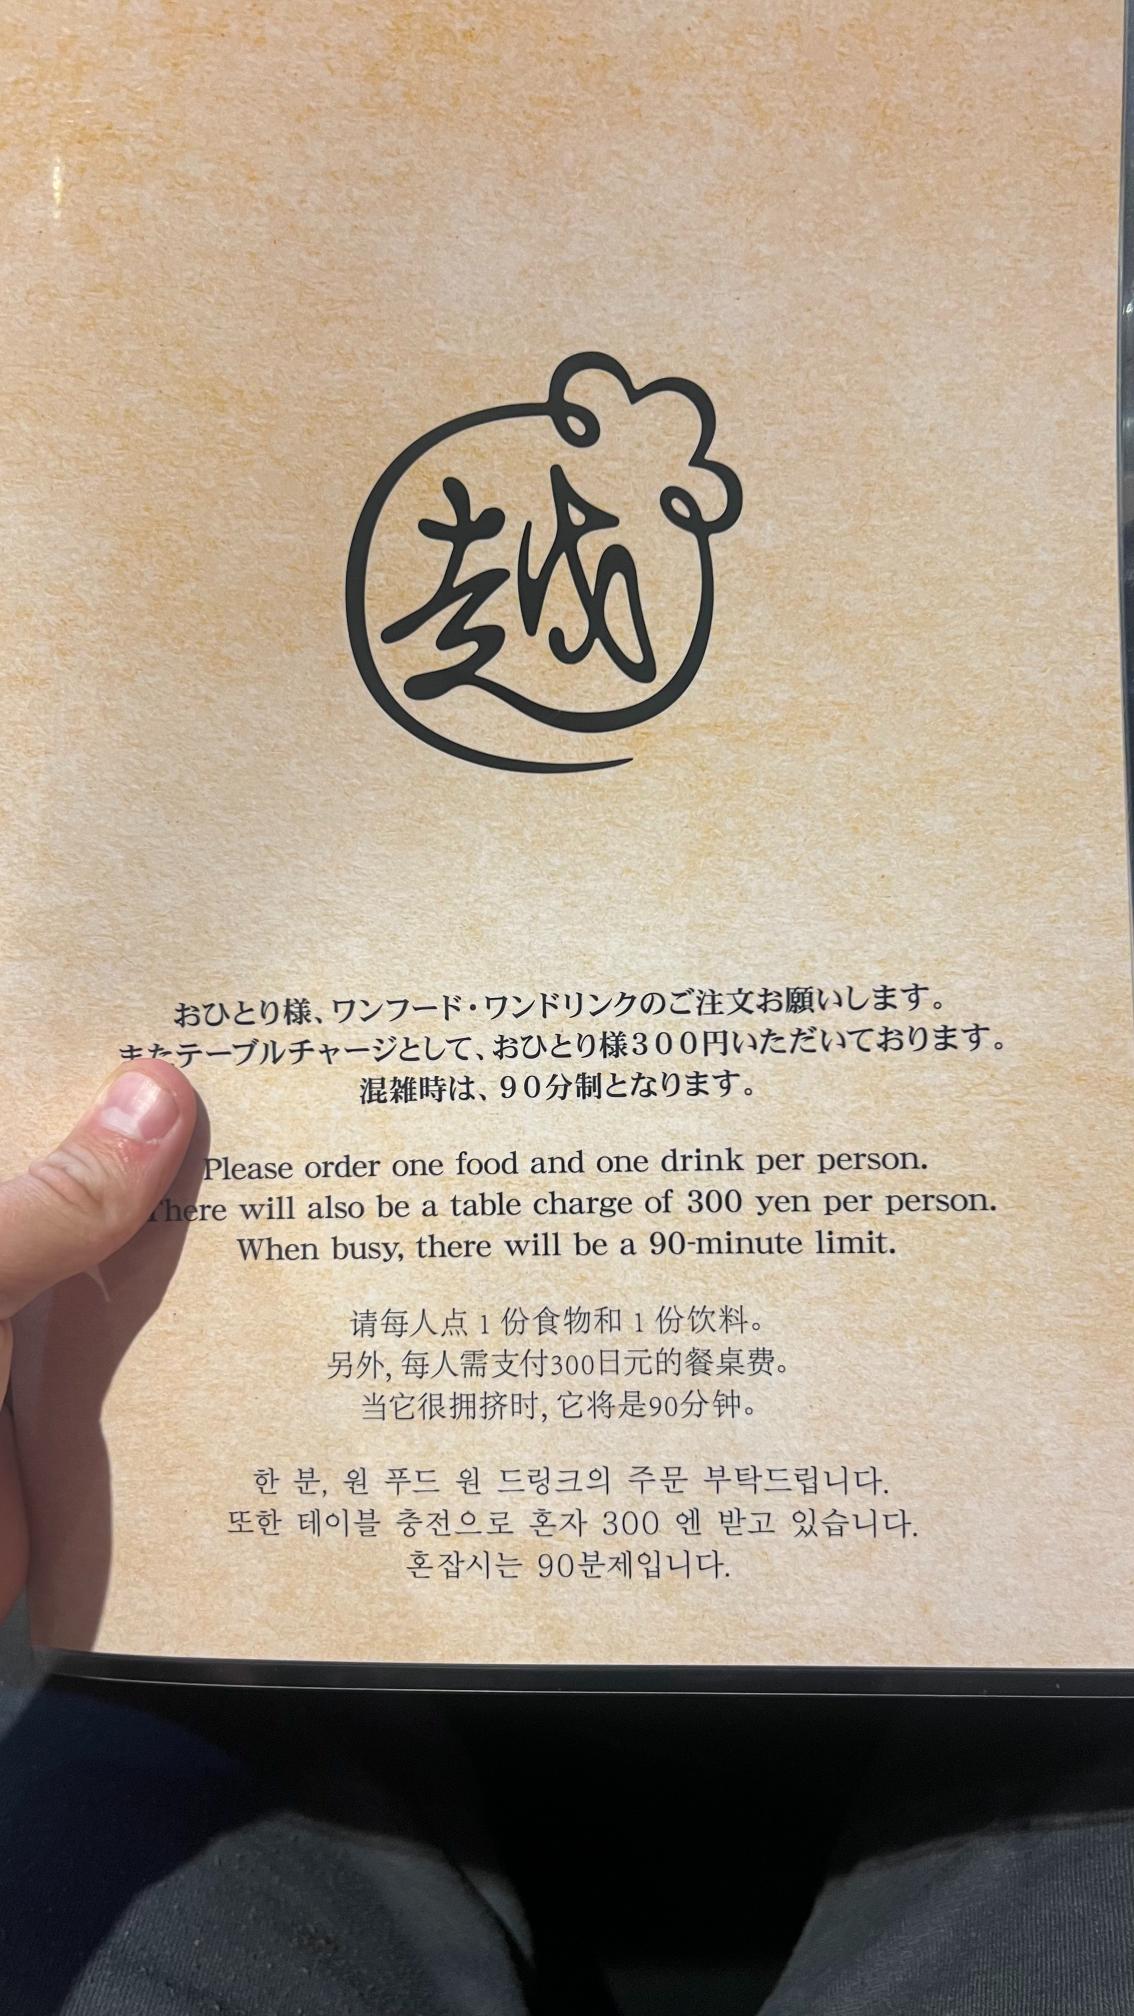 越
おひとり様、ワンフード・ワンドリンクのご注文お願いします。
またテーブルチャージとして、おひとり様300円いただいております。
混雑時は、90分制となります。
Please order one food and one drink per person.
There will also be a table charge of 300 yen per person.
When busy, there will be a 90-minute limit.
请每人点 1 份食物和 1 份饮料。
另外, 每人需支付300日元的餐桌费。
当它很拥挤时, 它将是90分钟。
한 분, 원 푸드 원 드링크의 주문 부탁드립니다.
또한 테이블 충전으로 혼자 300 엔 받고 있습니다.
혼잡시는 90분제입니다.